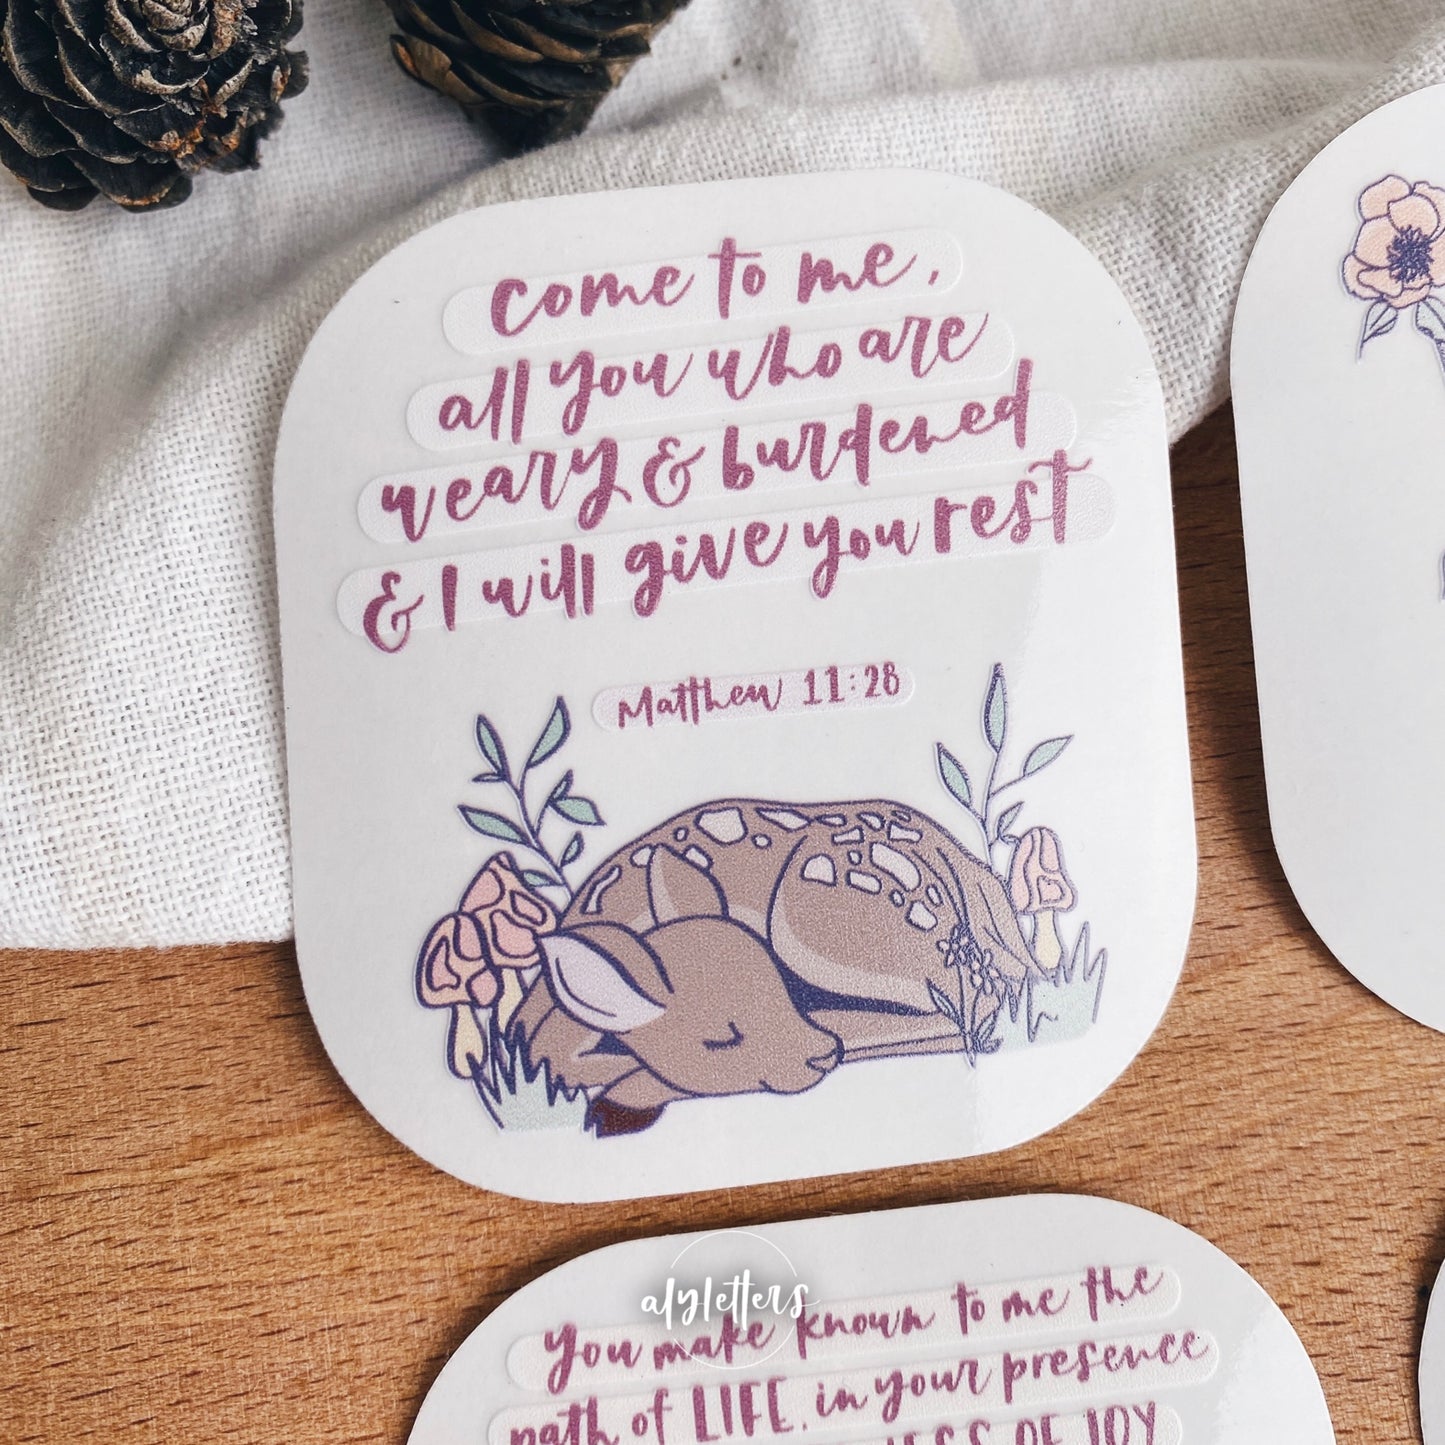 come to me,
all you who are
weary & burdened
& I will give you rest
Matthew 11:28
alyletters
you make known to me the
path of LIFE, in your presence
OF JOY